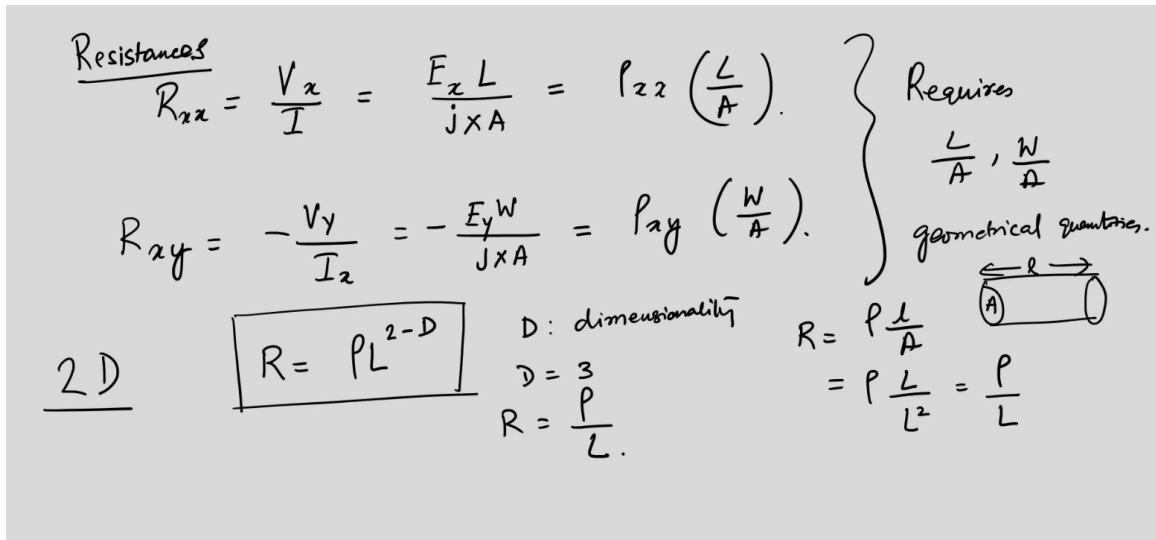 Resistances
R_xx = V_x / I = E_x L / j × A = ρ_xx (L / A).
R_xy = - V_y / I_x = - E_y W / j × A = ρ_xy (W / A).
Requires
L / A , W / A
geometrical quantities.
2D
R = ρL^(2-D)
D : dimensionality
D = 3
R = ρ / L .
l
A
R = ρ l / A
= ρ L / L² = ρ / L